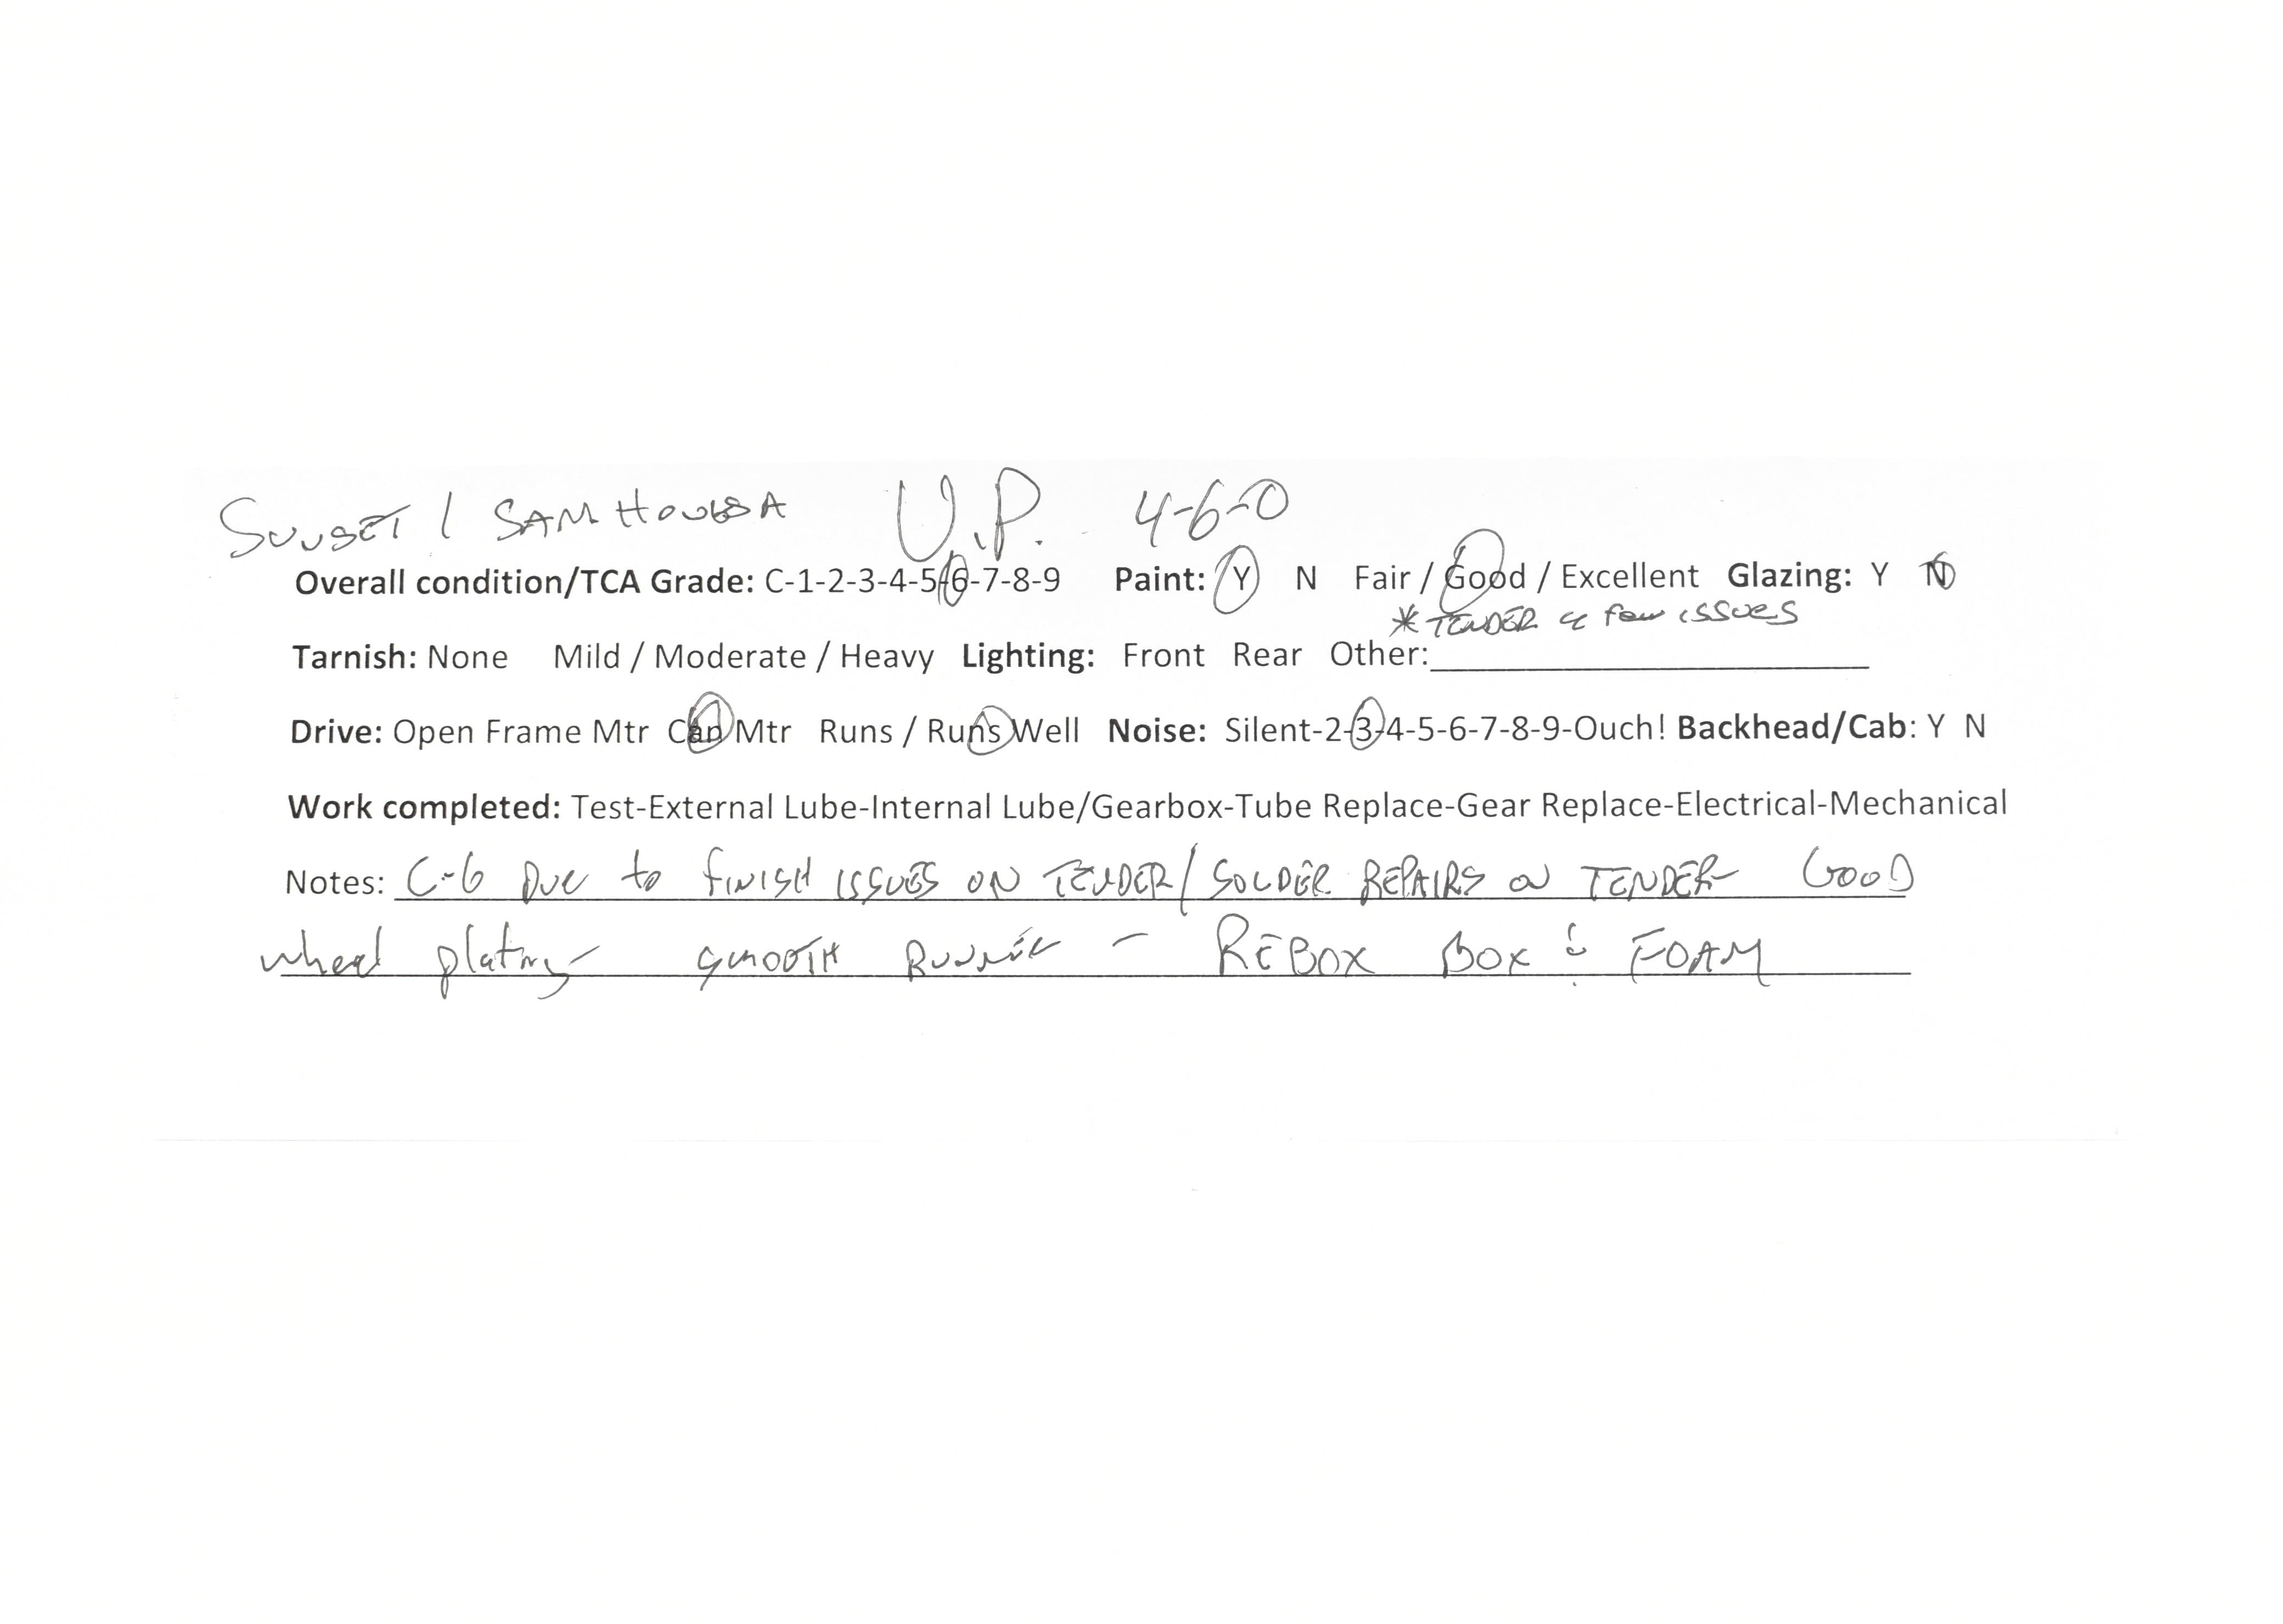 SUNSET / SAMHONGSA U.P. 4-6-0
Overall condition/TCA Grade: C-1-2-3-4-5-6-7-8-9 Paint: Y N Fair / Good / Excellent Glazing: Y N
* TENDER few issues
Tarnish: None Mild / Moderate / Heavy Lighting: Front Rear Other:
Drive: Open Frame Mtr Can Mtr Runs / Runs Well Noise: Silent-2-3-4-5-6-7-8-9-Ouch! Backhead/Cab: Y N
Work completed: Test-External Lube-Internal Lube/Gearbox-Tube Replace-Gear Replace-Electrical-Mechanical
Notes: C-6 Due to finish issues on TENDER/SOLDER REPAIRS on TENDER- GOOD
wheel plating SMOOTH RUNNER - REBOX BOX & FOAM